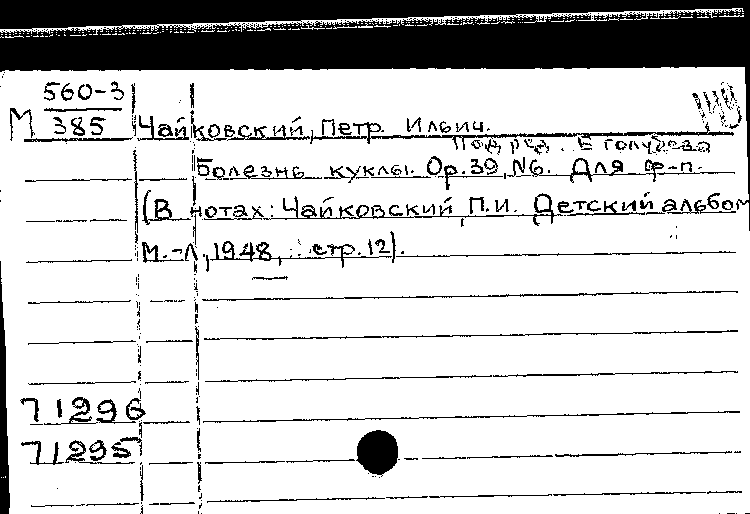 560-3
М 385 Чайковский, Петр. Ильич.
Под ред. Е Голубева
Болезнь куклы. Ор.39, №6. Для ф-п.
(В нотах: Чайковский, П.И. Детский альбом
М.-Л, 1948, стр.12).
71296
71295